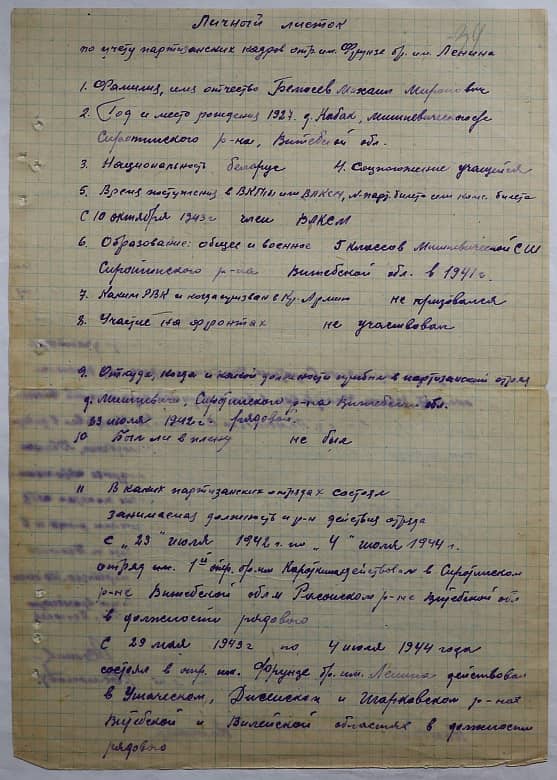 Личный листок
34
по учету партизанских кадров отр. им. Фрунзе бр. им. Ленина
1. Фамилия, имя отчество Михаил Миронович
2. Год и место рождения 1927 д.
Сиротинского р-на, Витебской обл.
3. Национальность беларус 4. Соцположение учащийся
5. Время поступления в ВКП(б) или ВЛКСМ, № парт. билета или комс. билета
С 10 октября 1943 г член ВЛКСМ
6. Образование: общее и военное 5 классов Мишневической СШ
Сиротинского р-на Витебской обл. в 1941 г.
7. Каким РВК и когда призван в Кр. Армию не призывался
8. Участие на фронтах не участвовал
9. Откуда, когда и какой должности прибыл в партизанский отряд
д. Мишневичи, Сиротинского р-на Витебской обл.
23 июля 1942 г. рядовой.
10 Был ли в плену не был
11 В каких партизанских отрядах состоял
занимаемая должность и р-н действия отряда
С "23" июля 1942 г. по "4" июля 1944 г.
отряд им. 1ый отр. бр. им Короткина действовал в Сиротинском
р-не Витебской обл и Россонском р-не Витебской обл
в должности рядового
С 29 мая 1943 г по 4 июля 1944 года
состоял в отр. им. Фрунзе бр. им. Ленина действовал
в Ушачском, Дисненском и Шарковском р-нах
Витебской и Вилейской областях в должности
рядового